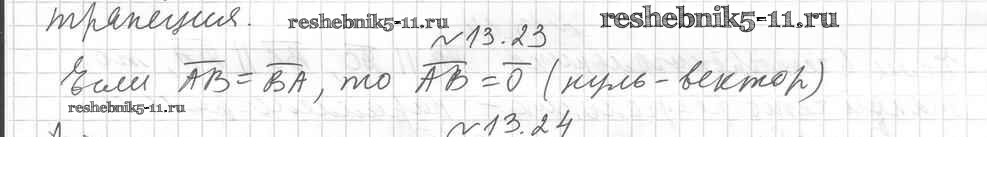 трапеция.
reshebnik5-11.ru
reshebnik5-11.ru
~13.23
Если AB = BA, то AB = 0 (нуль-вектор)
reshebnik5-11.ru
~13.24